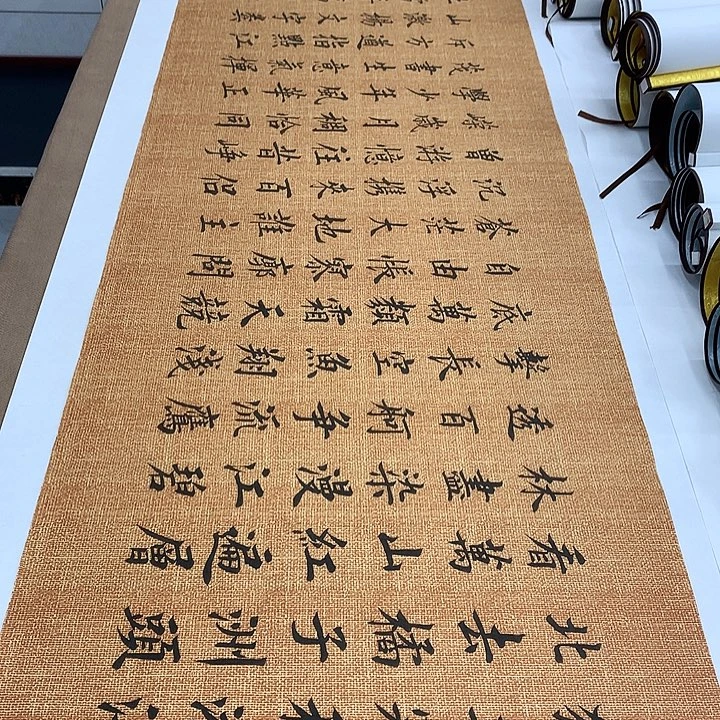 北去橘子洲頭
看萬山紅遍層
林盡染漫江碧
透百舸爭流鷹
擊長空魚翔淺
底萬類霜天競
自由悵寥廓問
蒼茫大地誰主
沉浮攜來百侶
曾游憶往昔崢
嶸歲月稠恰同
學少年風華正
茂書生意氣揮
斥方遒指點江
山激揚文字糞